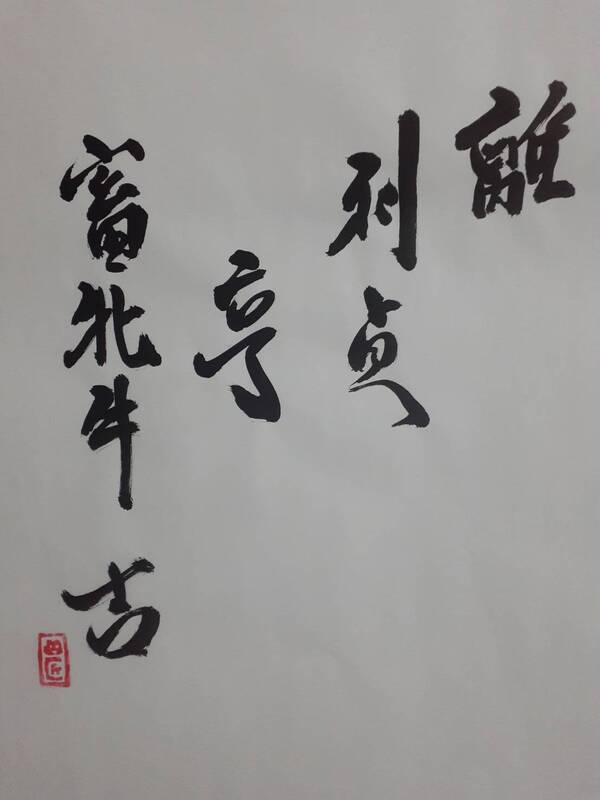 離
利貞
亨
畜牝牛 吉